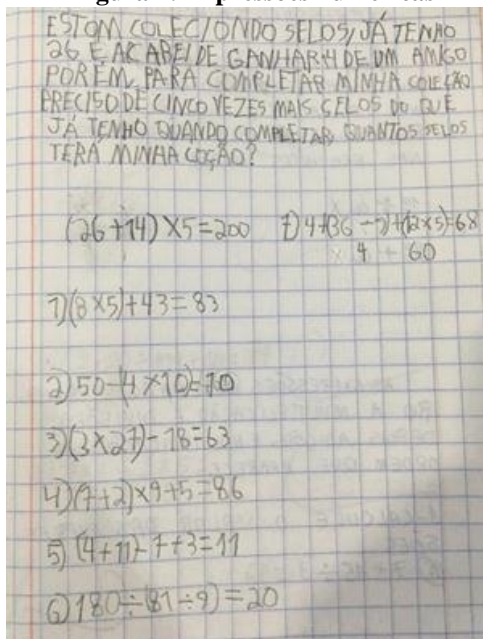 ESTOM COLECIONDO SELOS, JÁ TENHO
26 E ACABEI DE GANHAR 14 DE UM AMIGO
PORÉM, PARA COMPLETAR MINHA COLEÇÃO
PRECISO DE CINCO VEZES MAIS SELOS DO QUE
JÁ TENHO QUANDO COMPLETAR QUANTOS SELOS
TERÁ MINHA COÇÃO?
(26+14)×5=200
7) 4+(36÷9)+(12×5)=68
4 60
1)(8×5)+43=83
2) 50-(4×10)=10
3)(3×27)-18=63
4)(7+2)×9+5=86
5) (4+11)-7+3=11
6) 180÷(81÷9)=20